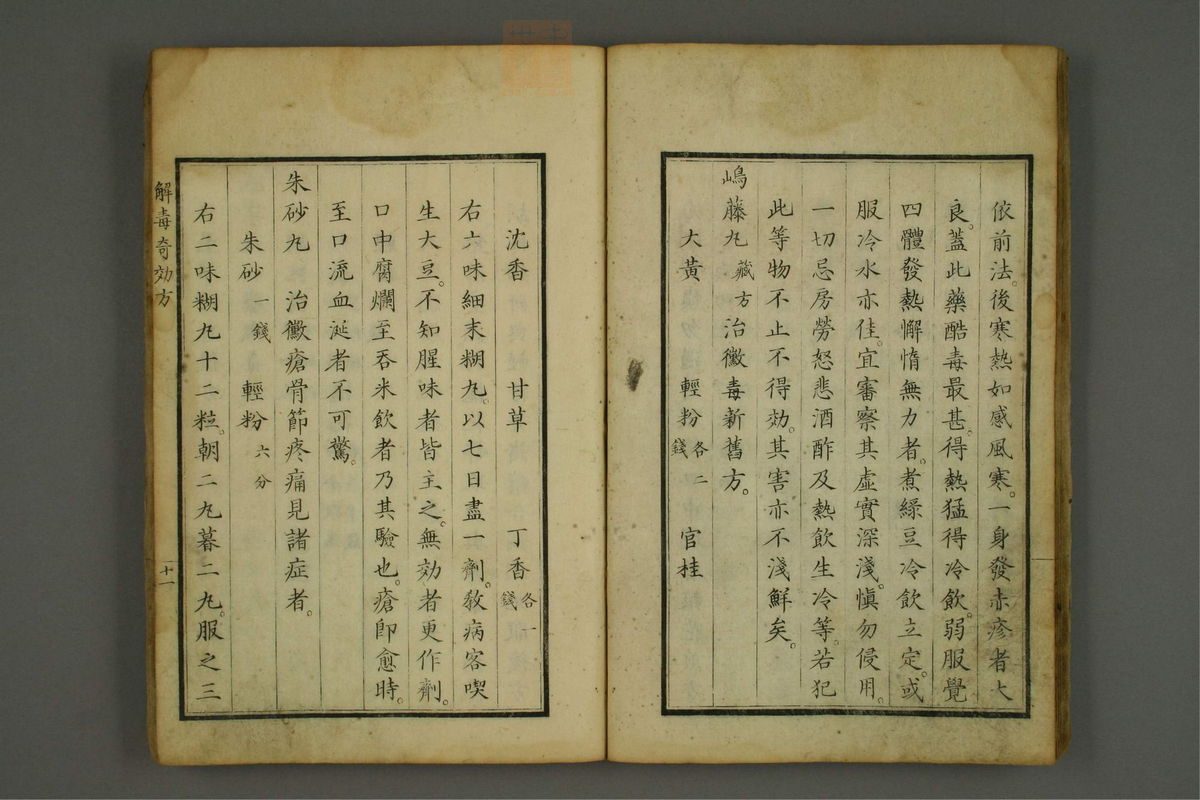 依前法。後寒熱如感風寒。一身發赤疹者大
良。蓋此藥酷毒最甚。得熱猛得冷飲。弱服覺
四體發熱懈惰無力者。煮綠豆冷飲立定。或
服冷水亦佳。宜審察其虛實深淺。慎勿侵用。
一切忌房勞怒悲酒酢及熱飲生冷等。若犯
此等物不止不得効。其害亦不淺鮮矣。
嶋藤丸 藏方 治黴毒新舊方。
大黃 輕粉 各二錢 官桂
沈香 甘草 丁香 各一錢
右六味細末糊丸。以七日盡一劑。教病客喫
生大豆。不知腥味者皆主之。無効者更作劑。
口中腐爛至吞米飲者乃其驗也。瘡卽愈時。
至口流血涎者不可驚。
朱砂丸 治黴瘡骨節疼痛見諸症者。
朱砂 一錢 輕粉 六分
右二味糊丸十二粒。朝二丸暮二丸。服之三
解毒奇効方
十一